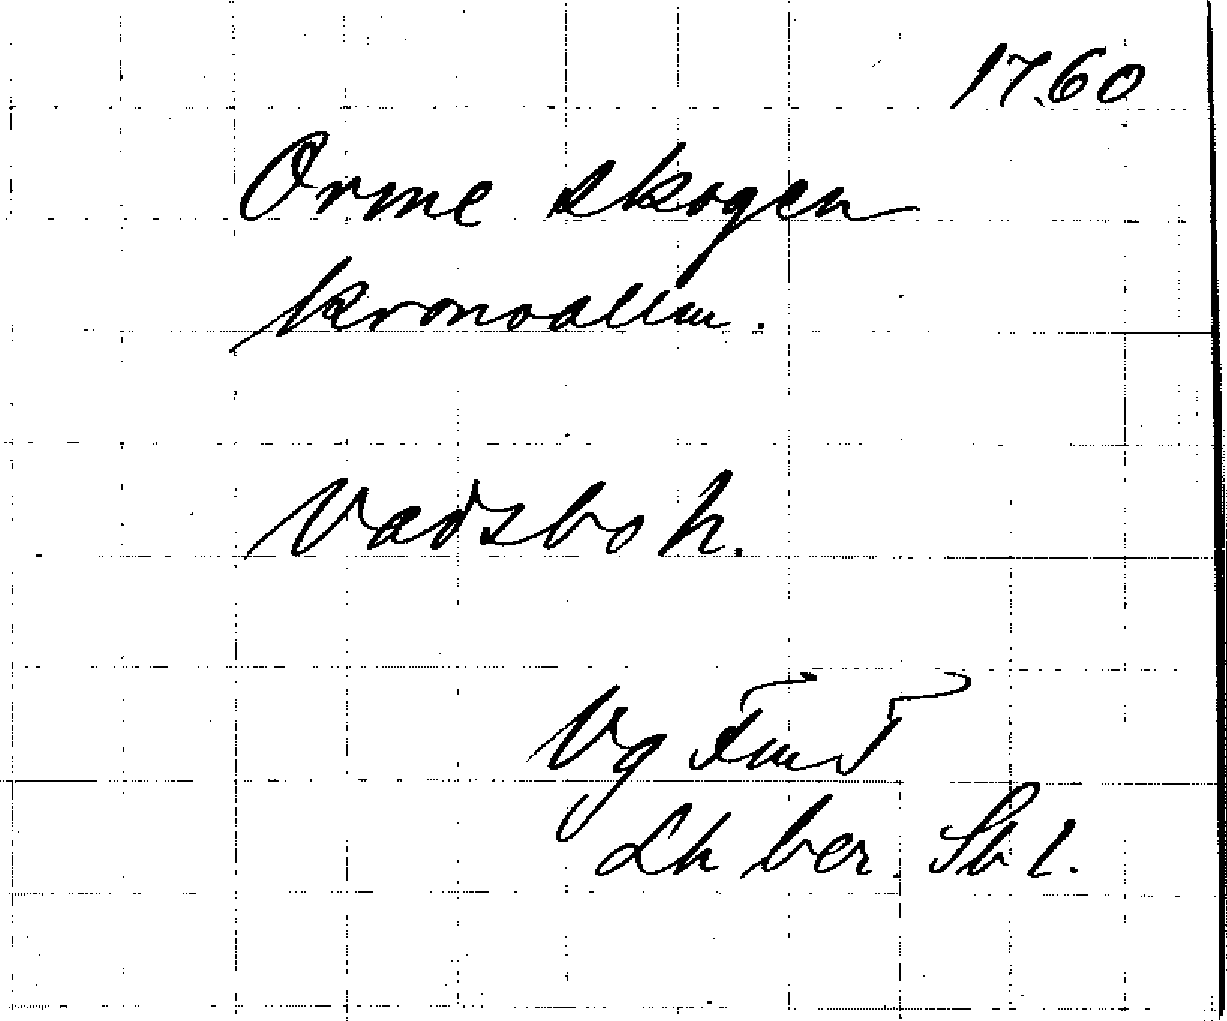 1760
Orme skogen
kronoallm.
Vadsbo h.
Vg
Lh ber. Sk 1.